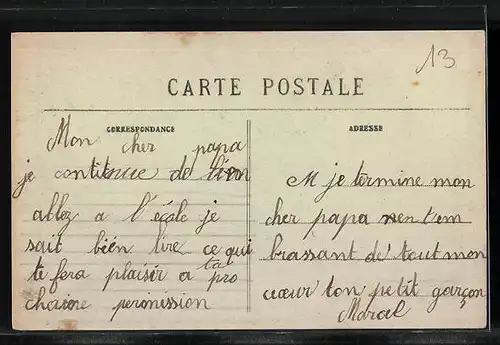 13
CARTE POSTALE
CORRESPONDANCE
Mon cher papa
je contitenue de bien
allez a l'école je
sait bién lire ce qui
te fera plaisir a ta pro
chaine permission
ADRESSE
M je termine mon
cher papa nen t'em
brassant de tout mon
cuœur ton petit garçon
Marcel